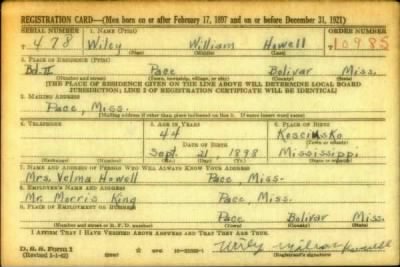 REGISTRATION CARD—(Men born on or after February 17, 1897 and on or before December 31, 1921)
SERIAL NUMBER 1. NAME (Print) ORDER NUMBER
T 478 Wiley William Howell 10985
(First) (Middle) (Last)
2. PLACE OF RESIDENCE (Print)
Bd. II Pace Bolivar Miss.
(Number and street) (Town, township, village, or city) (County) (State)
[THE PLACE OF RESIDENCE GIVEN ON THE LINE ABOVE WILL DETERMINE LOCAL BOARD
JURISDICTION; LINE 2 OF REGISTRATION CERTIFICATE WILL BE IDENTICAL]
3. MAILING ADDRESS
Pace, Miss.
[Mailing address if other than place indicated on line 2. If same insert word same]
4. TELEPHONE 5. AGE IN YEARS 6. PLACE OF BIRTH
44 Kosciusko
DATE OF BIRTH (Town or county)
Sept. 21, 1898 Mississippi
(Exchange) (Number) (Mo.) (Day) (Yr.) (State or country)
7. NAME AND ADDRESS OF PERSON WHO WILL ALWAYS KNOW YOUR ADDRESS
Mrs. Velma Howell Pace, Miss-
8. EMPLOYER'S NAME AND ADDRESS
Mr. Morris King Pace, Miss-
9. PLACE OF EMPLOYMENT OR BUSINESS
Pace Bolivar Miss.
(Number and street or R. F. D. number) (Town) (County) (State)
I AFFIRM THAT I HAVE VERIFIED ABOVE ANSWERS AND THAT THEY ARE TRUE.
D. S. S. Form 1
(Revised 4-1-42) (over) Wiley William Howell
(Registrant's signature)